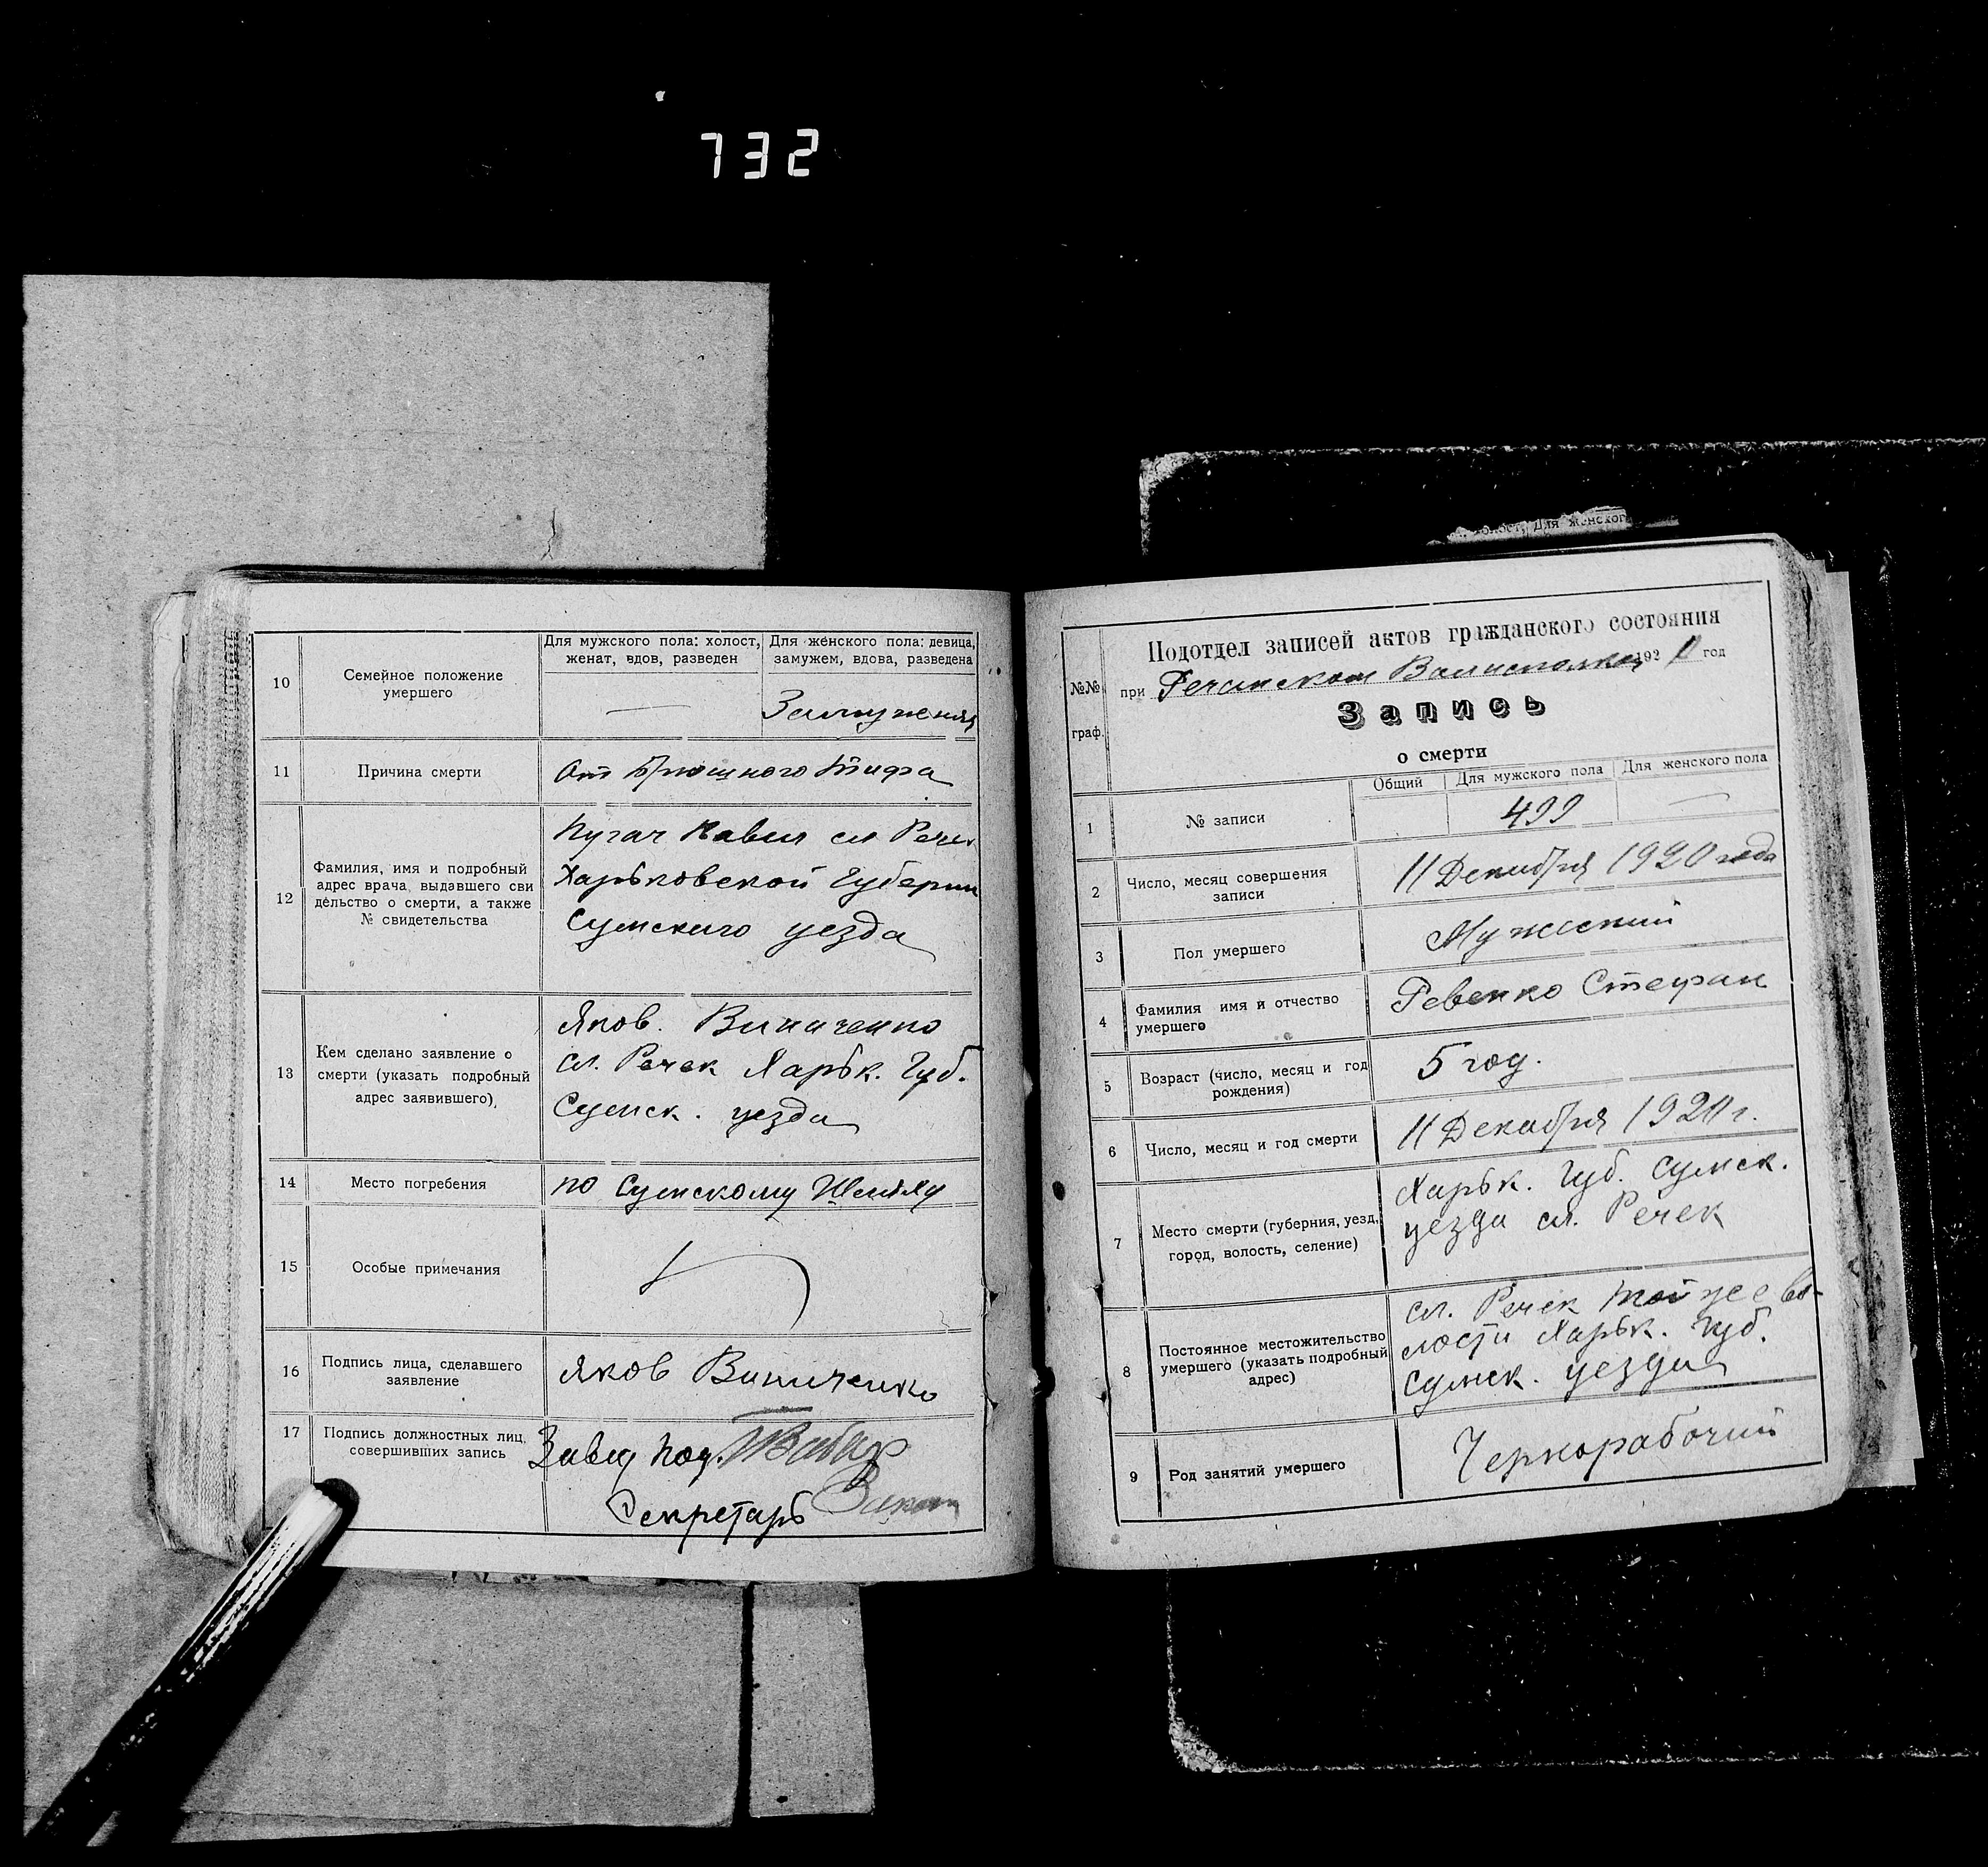 732
10
Семейное положение
умершего
Для мужского пола: холост,
женат, вдов, разведен
Для женского пола: девица,
замужем, вдова, разведена
—
Замужняя
11
Причина смерти
От Брюшного тифа
12
Фамилия, имя и подробный
адрес врача, выдавшего сви
детельство о смерти, а также
№ свидетельства
Пугач Павел сл Речек
Харьковской Губернии
Сумского уезда
13
Кем сделано заявление о
смерти (указать подробный
адрес заявившего)
Яков. Виниченко
сл. Речек Харьк. Губ.
Сумск. уезда
14
Место погребения
по Сумскому
15
Особые примечания
16
Подпись лица, сделавшего
заявление
Яков Виниченко
17
Подпись должностных лиц,
совершивших запись
Завед Под.
Секретарь
холост, Для женского
№№
граф.
Подотдел записей актов гражданского состояния
при Речанском Волисполкоме 1920 год
Запись
о смерти
Общий
Для мужского пола
Для женского пола
1
№ записи
499
—
2
Число, месяц совершения
записи
11 Декабря 1920 года
3
Пол умершего
Мужский
4
Фамилия имя и отчество
умершего
Ревенко Стефан
5
Возраст (число, месяц и год
рождения)
5 год.
6
Число, месяц и год смерти
11 Декабря 1920 г.
7
Место смерти (губерния, уезд,
город, волость, селение)
Харьк. Губ. Сумск.
уезда сл. Речек
8
Постоянное местожительство
умершего (указать подробный
адрес)
сл. Речек той же во-
лости Харьк. Губ.
Сумск. уезда
9
Род занятий умершего
Чернорабочий